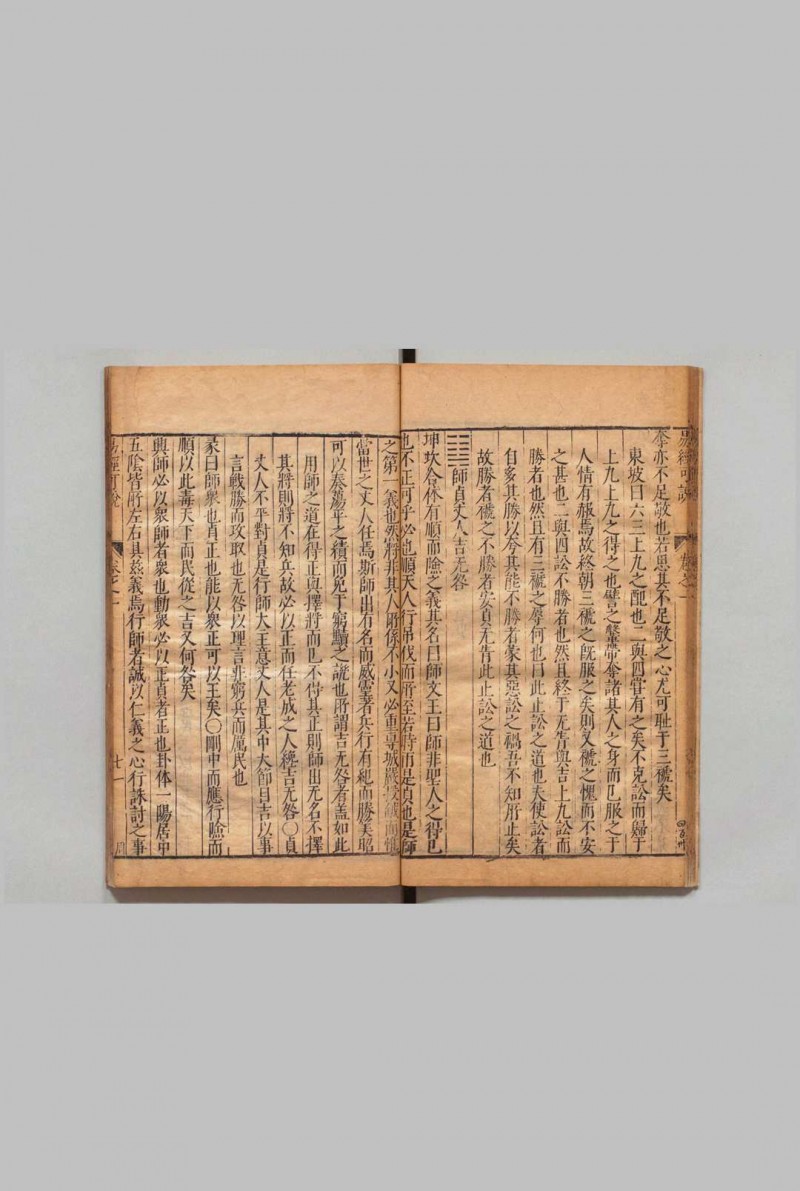 易經可說 卷之一
奪亦不足敬也若思其不足敬之心尤可恥于三褫矣
東坡曰六三上九之配也二與四嘗有之矣不克訟而歸于
上九上九之得之也譬之鞶帶奪諸其人之身而已服之于
人情有赧焉故終朝三褫之旣服之矣則又褫之愧而不安
之甚也二與四訟不勝者也然且終于无眚與吉上九訟而
勝者也然且有三褫之辱何也曰此止訟之道也夫使訟者
自多其勝以夸其能不勝者冡其惡訟之禍吾不知所止矣
故勝者褫之不勝者安貞无眚此止訟之道也
䷆師貞丈人吉无咎
坤坎合体有順而險之義其名曰師文王曰師非聖人之得已
也不正可乎必也順天人行吊伐而所至若時雨是貞也是師
之第一義也然將非其人所係不小又必重專城嚴
當世之丈人任焉斯師出有名而威靈著兵行有紀而勝美昭
可以奏蕩平之績而免于窮黷之謊也所謂吉无咎者盖如此
用師之道在得正與擇將而已不得其正則師出无名不擇
其將則將不知兵故必以正而任老成之人纔吉无咎〇貞
丈人不平對貞是行師大主意丈人是其中大節目吉以事
言戰勝而攻取也无咎以理言非窮兵而厲民也
彖曰師衆也貞正也能以衆正可以王矣〇剛中而應行險而
順以此毒天下而民從之吉又何咎矣
興師必以衆師者衆也動衆必以正貞者正也卦体一陽居中
五陰皆所左右具玆義焉行師者誠以仁義之心行誅討之事
易經可說 卷之一 七一